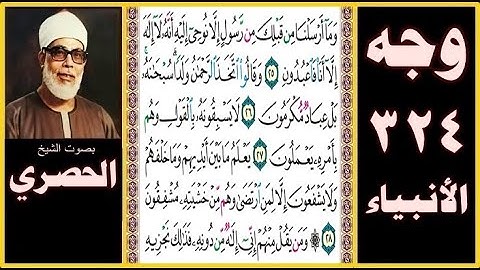 وجه
٣٢٤
الأنبياء
وَمَآ أَرْسَلْنَا مِن قَبْلِكَ مِن رَّسُولٍ إِلَّا نُوحِىٓ إِلَيْهِ أَنَّهُۥ لَآ إِلَٰهَ
إِلَّآ أَنَا۠ فَٱعْبُدُونِ ٢٥ وَقَالُوا۟ ٱتَّخَذَ ٱلرَّحْمَٰنُ وَلَدًا ۗ سُبْحَٰنَهُۥ ۚ
بَلْ عِبَادٌ مُّكْرَمُونَ ٢٦ لَا يَسْبِقُونَهُۥ بِٱلْقَوْلِ وَهُم
بِأَمْرِهِۦ يَعْمَلُونَ ٢٧ يَعْلَمُ مَا بَيْنَ أَيْدِيهِمْ وَمَا خَلْفَهُمْ
وَلَا يَشْفَعُونَ إِلَّا لِمَنِ ٱرْتَضَىٰ وَهُم مِّنْ خَشْيَتِهِۦ مُشْفِقُونَ
٢٨ ۞ وَمَن يَقُلْ مِنْهُمْ إِنِّىٓ إِلَٰهٌ مِّن دُونِهِۦ فَذَٰلِكَ نَجْزِيهِ
بصوت الشيخ
الحصري